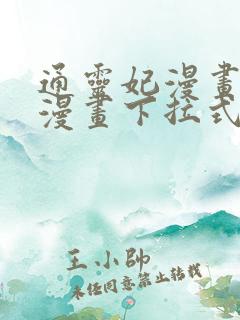 通靈妃漫畫
漫畫下拉式
王小帥
未經同意禁止轉載